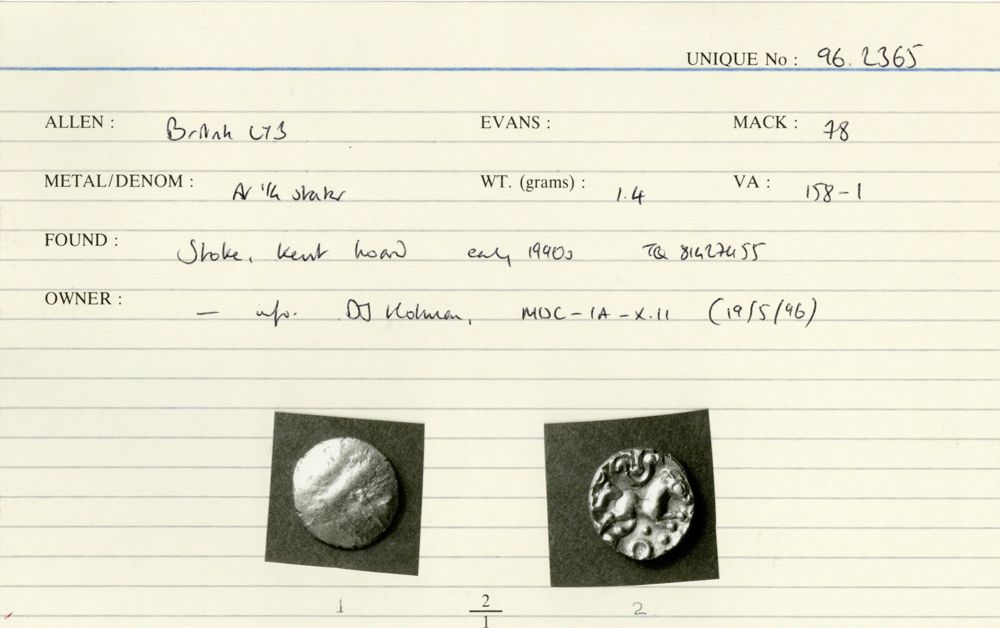 UNIQUE No : 96.2365
ALLEN : British LY3 EVANS : MACK : 78
METAL/DENOM : AV 1/4 stater WT. (grams) : 1.4 VA : 158-1
FOUND : Stoke, Kent hoard early 1990s TQ 81427455
OWNER : — info. DJ Holman, (19/5/96)
1 2/1 2